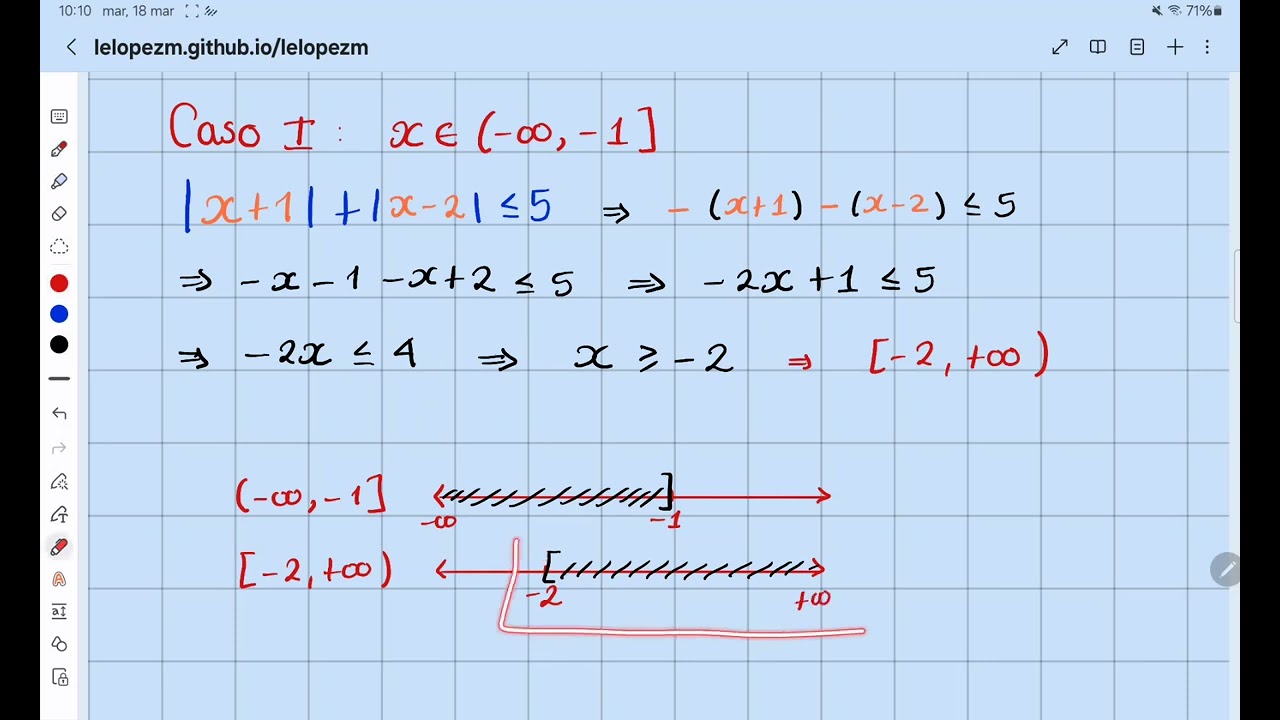 10:10 mar, 18 mar 71%
lelopezm.github.io/lelopezm
Caso I: x ∈ (-∞, -1]
|x+1| + |x-2| ≤ 5 ⇒ - (x+1) - (x-2) ≤ 5
⇒ -x - 1 - x + 2 ≤ 5 ⇒ -2x + 1 ≤ 5
⇒ -2x ≤ 4 ⇒ x ≥ -2 ⇒ [-2, +∞)
(-∞, -1]
-∞ -1
[-2, +∞)
-2 +∞